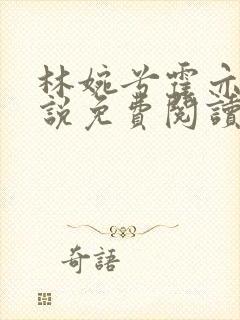 林婉兮霍亦
說免費閱讀
奇語